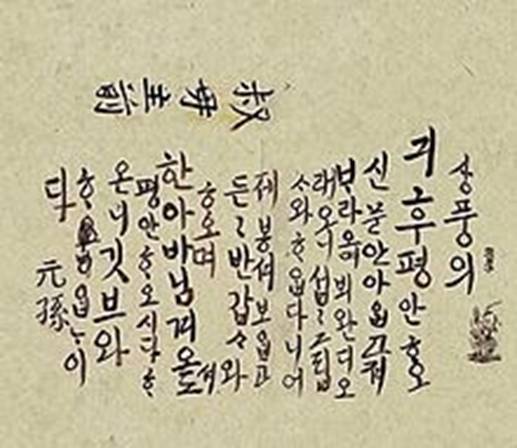 叔母主前
상풍의
긔후평안ᄒᆞ오
신문안아ᄋᆞᆸ고져
ᄇᆞ라오며뵈완디오
래오니섭〻그립
ᄉᆞ와ᄒᆞᄋᆞᆸ다니어
제봉셔보ᄋᆞᆸ고
든〻반갑ᄉᆞ와
ᄒᆞ오며
한아바님겨오셔도
평안ᄒᆞ오시다ᄒᆞ
온니깃브와
ᄒᆞᄋᆞᆸᄂᆞ이
다 元孫